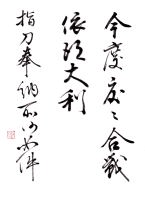 今度度々合戦
依現大利
指刀奉納所如件